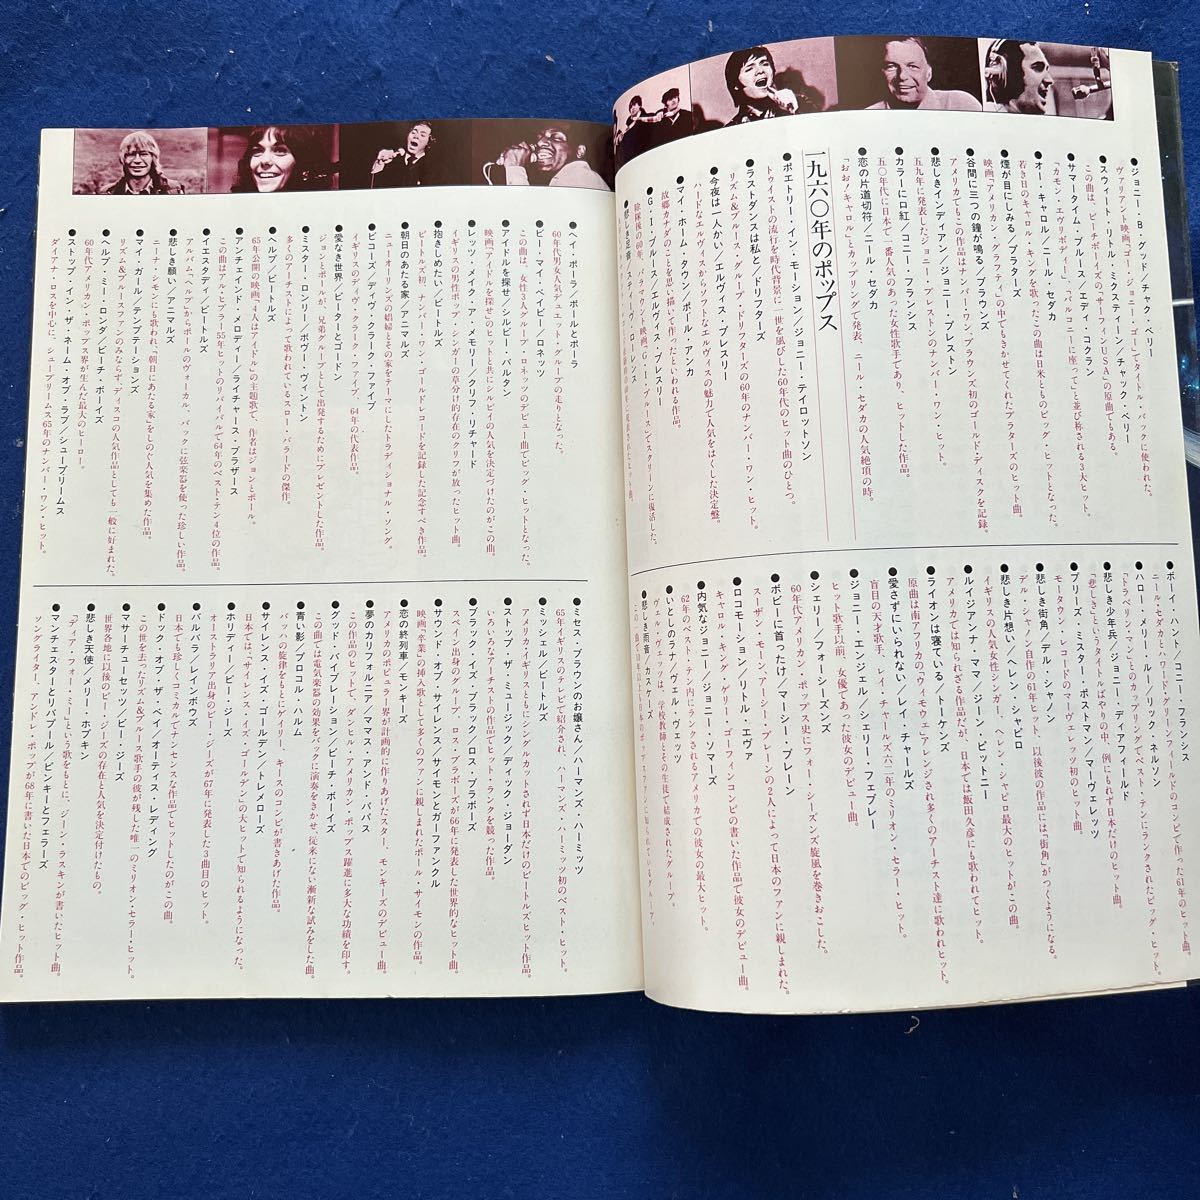 ●ジョニー・B・グッド／チャック・ベリー
ヴァリアント映画「ゴー・ジョニー・ゴー」でタイトル・バックに使われた。
●スウィート・リトル・ミクスティーン／チャック・ベリー
この曲は、ビーチボーイズの「サーフィンUSA」の原曲でもある。
●サマータイム・ブルース／エディ・コクラン
「カモン・エヴリボディー」、「バルコニーに座って」と並び称される3大ヒット。
●オー・キャロル／ニール・セダカ
若き日のキャロル・キングを歌ったこの曲は日米とものビッグ・ヒットとなった。
●煙が目にしみる／プラターズ
映画「アメリカン・グラフィティ」の中でもきかせてくれたプラターズのヒット。
●谷間に三つの鐘が鳴る／ブラウンズ
アメリカでもこの作品はナンバー・ワン、ブラウンズ初のゴールド・ディスクを記録。
●悲しきインディアン／ジョニー・プレストン
五九年に発表したジョニー・プレストンのナンバー・ワン・ヒット。
●カラーに口紅／コニー・フランシス
五〇年代に日本で一番人気のあった女性歌手であり、ヒットした作品。
●恋の片道切符／ニール・セダカ
「おお!キャロル」とカップリングで発表、ニール・セダカの人気絶頂の時。
一九六〇年のポップス
●ポエトリー・イン・モーション／ジョニー・ティロットソン
トゥイストの流行を時代背景に一世を風びした60年代のヒット曲のひとつ。
●ラストダンスは私と／ドリフターズ
リズム&ブルース・グループ・ドリフターズの60年のナンバー・ワン・ヒット。
●今夜は一人かい／エルヴィス・プレスリー
ハードなエルヴィスからソフトなエルヴィスの魅力で人気をはくした決定盤。
●マイ・ホーム・タウン／ポール・アンカ
故郷カナダのことを思い描いて作ったといわれる作品。
●G・I・ブルース／エルヴィス・プレスリー
除隊後の60年、パラマウント映画「G・I・ブルース」でスクリーンに復活した。
●悲しき足音／スティーヴ・ローレンス
●ボーイ・ハント／コニー・フランシス
ニール・セダカとハワード・グリーンフィールドのコンビで作った61年のヒット曲。
●ハロー・メリー・ルー／リッキー・ネルソン
「トラベリン・マン」とのカップリングでベスト・テンにランクされたビッグ・ヒット。
●悲しき少年兵／ジョニー・ディアフィールド
「悲しき」というタイトルばやりの中、例にもれず日本だけのヒット曲。
●プリーズ・ミスター・ポストマン／マーヴェレッツ
モータウン・レコードのマーヴェレッツ初のヒット曲。
●悲しき街角／デル・シャノン
デル・シャノン自作の61年ヒット、以後彼の曲には「街角」がつくようになる。
●悲しき片想い／ヘレン・シャピロ
イギリスの人気女性シンガー、ヘレン・シャピロ最大のヒットがこの曲。
●ルイジアンナ・ママ／ジーン・ピットニー
アメリカでは知られざる作品だが、日本では飯田久彦にも歌われてヒット。
●ライオンは寝ている／トーケンズ
原曲は南アフリカの「ウィモウェ」アレンジされ多くのアーチスト達に歌われヒット。
●愛さずにいられない／レイ・チャールズ
盲目の天才歌手、レイ・チャールズ六二年のミリオン・セラー・ヒット。
●ジョニー・エンジェル／シェリー・フェブレー
ヒット歌手以前、女優であった彼女のデビュー曲。
●シェリー／フォーシーズンズ
60年代アメリカン・ポップス史にフォー・シーズンズ旋風を巻きおこした。
●ボビーに首ったけ／マーシー・ブレーン
スーザン・モーン、マーシー・ブレーンの2人によって日本のファンに親しまれた。
●ロコモーション／リトル・エヴァ
キャロル・キング、ゲリー・ゴフィンコンビの書いた作品で彼女のデビュー曲。
●内気なジョニー／ジョニー・ソマーズ
62年のベスト・テン内にランクされるアメリカでの彼女の最大ヒット。
●いとしのラナ／ヴェルヴェッツ
ヴェルヴェッツは、学校教師とその生徒で結成されたグループ。
●悲しき雨音／カスケーズ
●ヘイ・ポーラ／ポールとポーラ
60年代男女人気デュエット・グループの走りとなった。
●ビー・マイ・ベイビー／ロネッツ
この曲は、女性3人グループ・ロネッツのデビュー曲でビッグ・ヒットとなった。
●アイドルを探せ／シルビー・バルタン
映画「アイドルを探せ」のヒットと共にシルビイの人気を決定づけたのがこの曲。
●レッツ・メイク・ア・メモリー／クリフ・リチャード
イギリスの男性ポップ・シンガーの草分け的存在のクリフが放ったヒット曲。
●抱きしめたい／ビートルズ
ビートルズ初、ナンバー・ワン・ゴールドレコードを記録した記念すべき作品。
●朝日のあたる家／アニマルズ
ニューオーリンズの娼婦とその家をテーマにしたトラディショナル・ソング。
●ビコーズ／ディヴ・クラーク・ファイブ
イギリスのディヴ・クラーク・ファイブ、64年の代表作品。
●愛なき世界／ピーターとゴードン
ジョンとポールが、兄弟グループとして出発するためにプレゼントした作品。
●ミスター・ロンリー／ボヴー・ヴィントン
多くのアーチストによって歌われているスロー・バラードの傑作。
●ヘルプ／ビートルズ
65年公開の映画「4人はアイドル」の主題歌で、作者はジョンとポール。
●アンチェインド・メロディー／ライチャース・ブラザース
この曲はアル・ヒブラー55年ヒットのリバイルで64年のベスト・テン4位の作品。
●イエスタデイ／ビートルズ
アルバム「ヘルプ」からポールのヴォーカル、バックに弦楽器を使った珍しい作品。
●悲しき願い／アニマルズ
ニーナ・シモンにも歌われ、「朝日にあたる家」をしのぐ人気を集めた作品。
●マイ・ガール／テンプテーションズ
リズム&ブルースファンのみならず、ディスコの人気作品としても一般に好まれた。
●ヘルプ・ミー・ロンダ／ビーチ・ボーイズ
60年代アメリカン・ポップス界が生んだ最大のヒーロー。
●ストップ・イン・ザ・ネーム・オブ・ラブ／シュープリームス
ダイアナ・ロスを中心に、シュープリームス65年のナンバー・ワン・ヒット。
●ミセス・ブラウンのお嬢さん／ハーマンズ・ハーミッツ
65年イギリスのテレビで紹介され、ハーマンズ・ハーミッツ初のベスト・ヒット。
●ミッシェル／ビートルズ
アメリカ・イギリスともにシングルカットされず日本だけのビートルズヒット作品。
●ストップ・ザ・ミュージック／ディック・ジョーダン
いろいろなアーチストの作品でヒット・ランクを競った作品。
●ブラック・イズ・ブラック／ロス・ブラボーズ
スペイン出身のグループ、ロス・ブラボーズが66年に発表した世界的なヒット曲。
●サウンド・オブ・サイレンス／サイモンとガーファンクル
映画「卒業」の挿入歌として多くのファンに親しまれたポール・サイモンの作品。
●恋の終列車／モンキーズ
アメリカのポピュラー界が計画的に作りあげたスター、モンキーズのデビュー曲。
●夢のカリフォルニア／ママス・アンド・パパス
この作品のヒットで、ダンヒル・アメリカン・ポップス躍進に多大な功績を印す。
●グッド・バイブレーション／ビーチ・ボーイズ
この曲では電気楽器の効果をバックに演奏をきかせ、従来にない漸新な試みをした曲。
●青い影／プロコル・ハルム
バッハの旋律をもとにゲイリー、キースのコンビが書きあげた作品。
●サイレンス・イズ・ゴールデン／トレメローズ
日本では、「サイレンス・イズ・ゴールデン」の大ヒットで知られるようになった。
●ホリディ／ビー・ジーズ
オーストラリア出身のビー・ジーズが67年に発表した3曲目のヒット。
●バルバラ／レインボウズ
日本でも珍しくコミカルでナンセンスな作品でヒットしたのがこの曲。
●ドック・オブ・ザ・ベイ／オーティス・レディング
この世を去ったリズム&ブルース歌手の彼が残した唯一のミリオン・セラー・ヒット。
●マサーチューセッツ／ビー・ジーズ
世界各地に以後のビー・ジーズの存在と人気を決定付けたもの。
●悲しき天使／メリー・ホプキン
「ディア・フォー・ミー」という歌をもとに、ジーン・ラスキンが書いたヒット曲。
●マンチェスターとリバプール／ピンキーとフェラーズ
ソングライター、アンドレ・ポップが68年に書いた日本でのビッグ・ヒット。